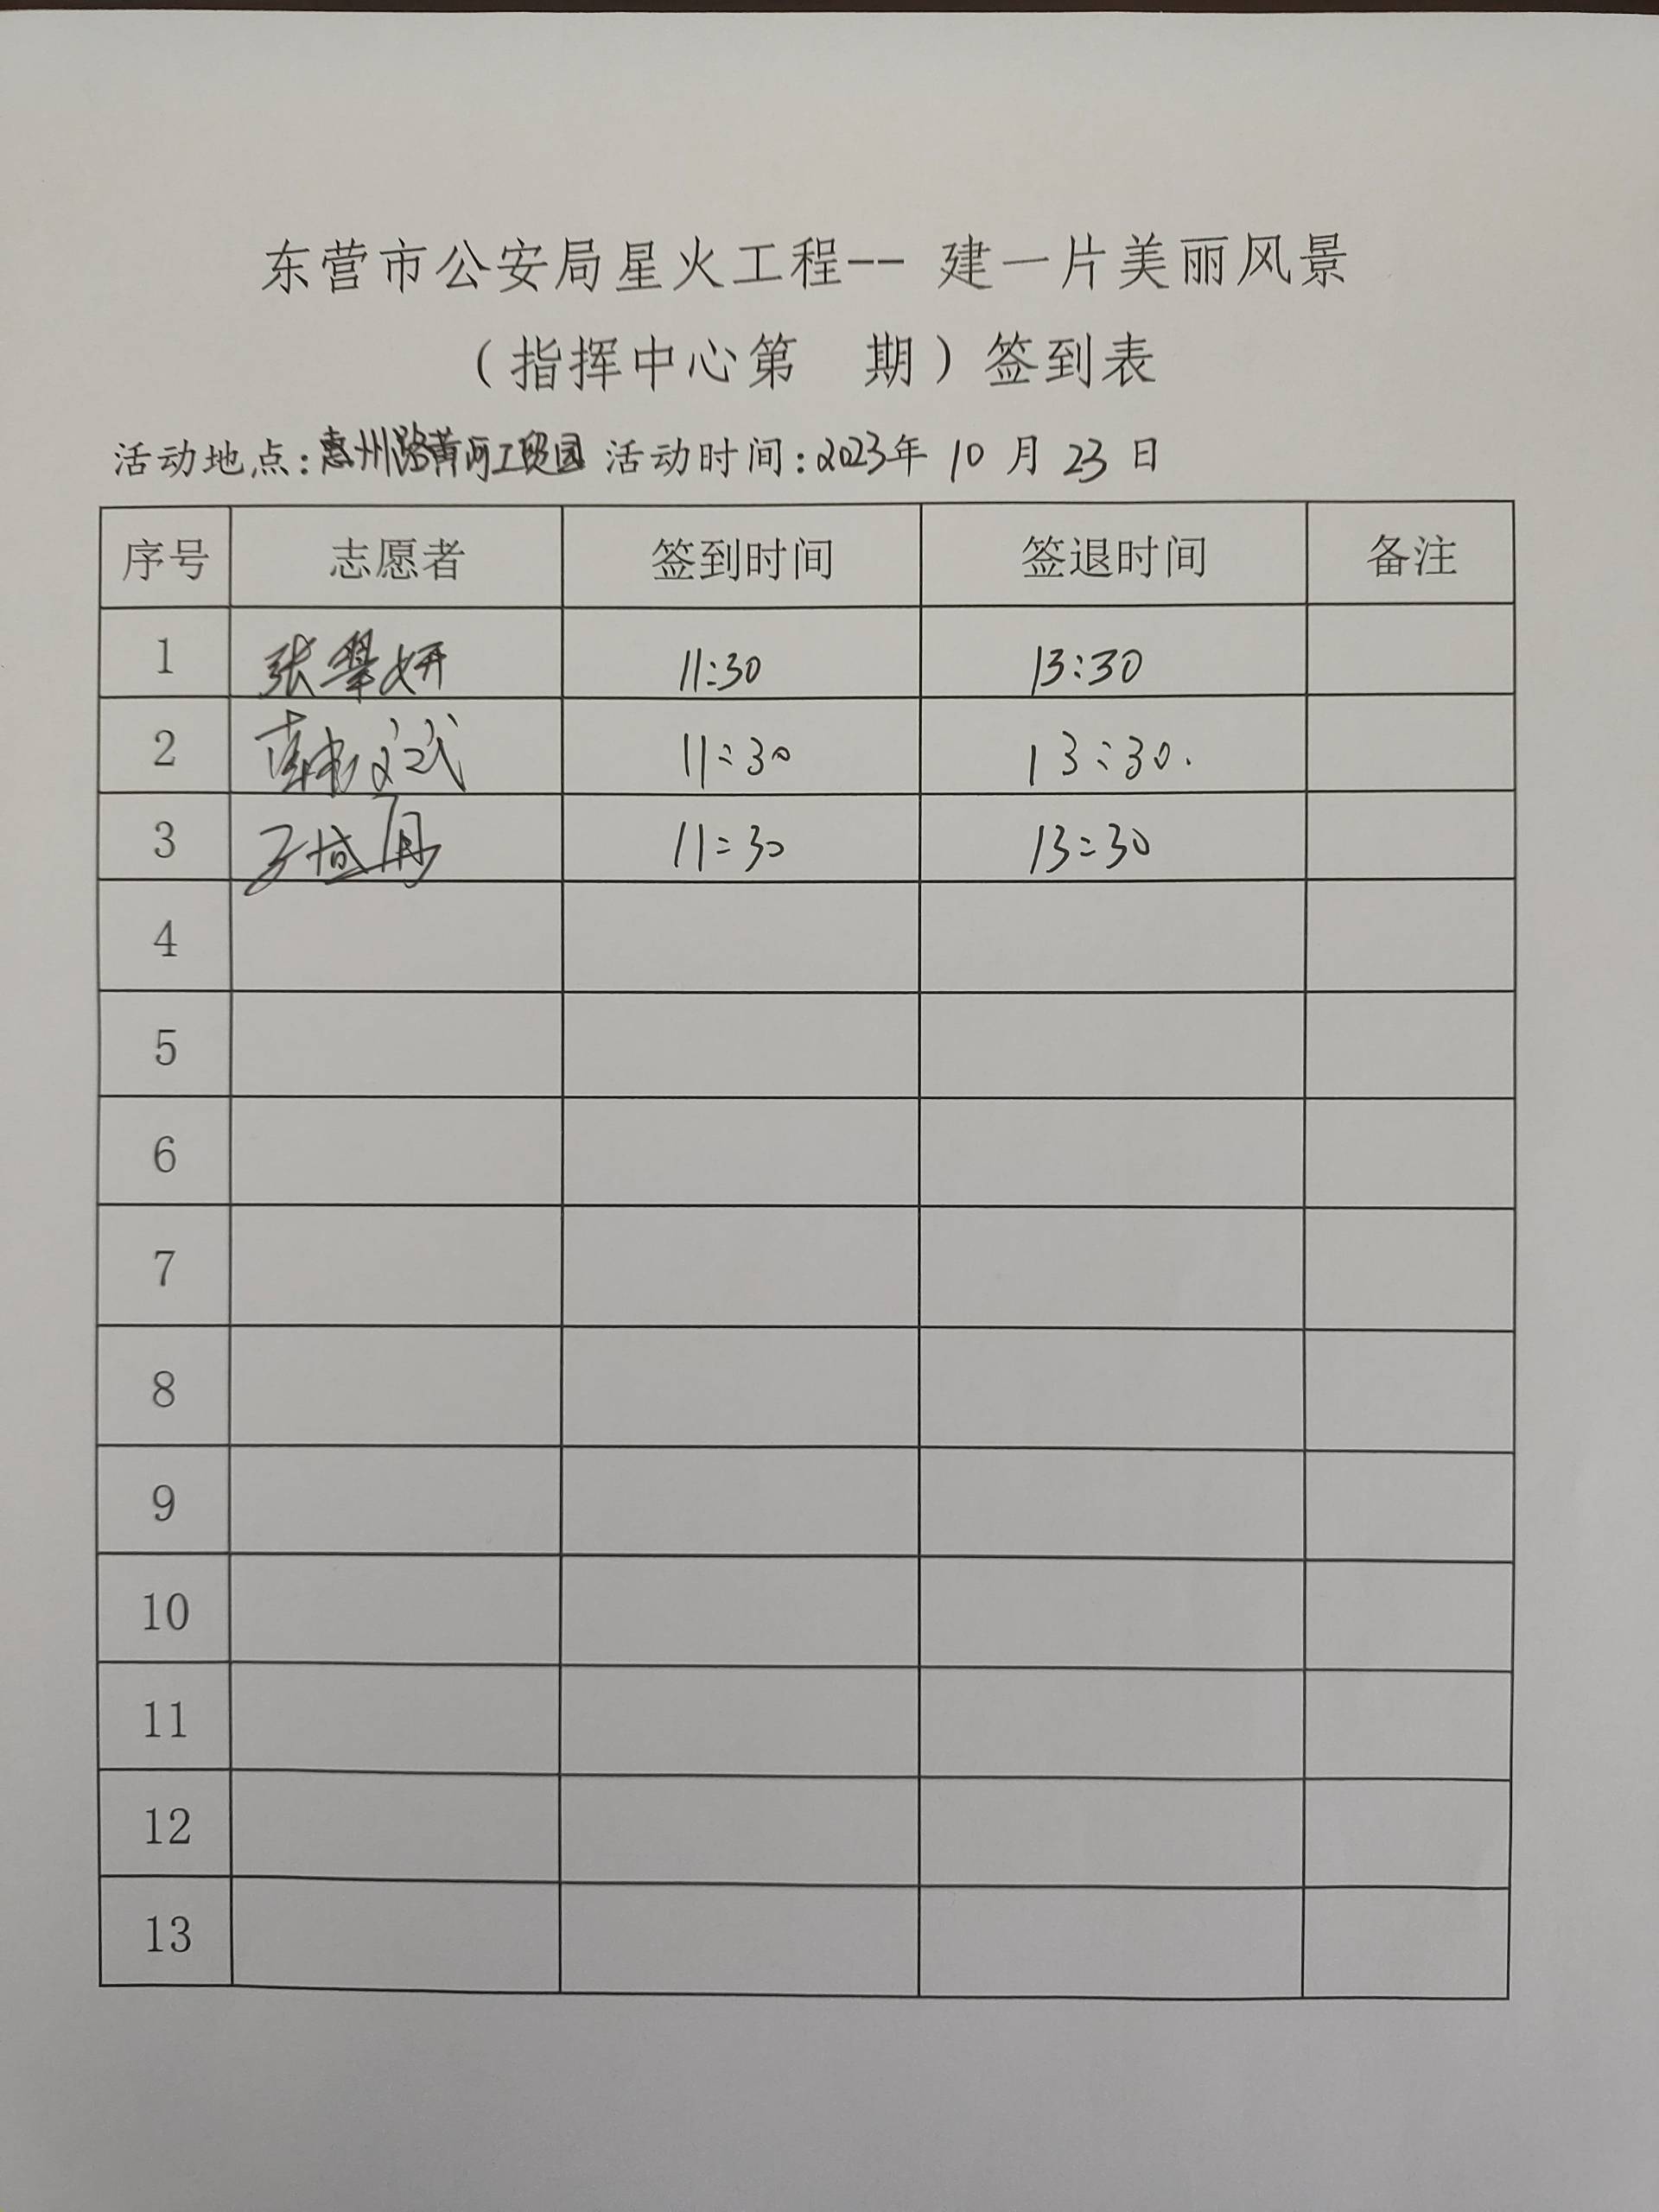 东营市公安局星火工程-- 建一片美丽风景
（指挥中心第 期）签到表
活动地点：惠州路黄河工贸园 活动时间：2023年 10 月 23 日
序号 志愿者 签到时间 签退时间 备注
1 张翠妍 11:30 13:30
2 11:30 13:30.
3 11:30 13:30
4
5
6
7
8
9
10
11
12
13